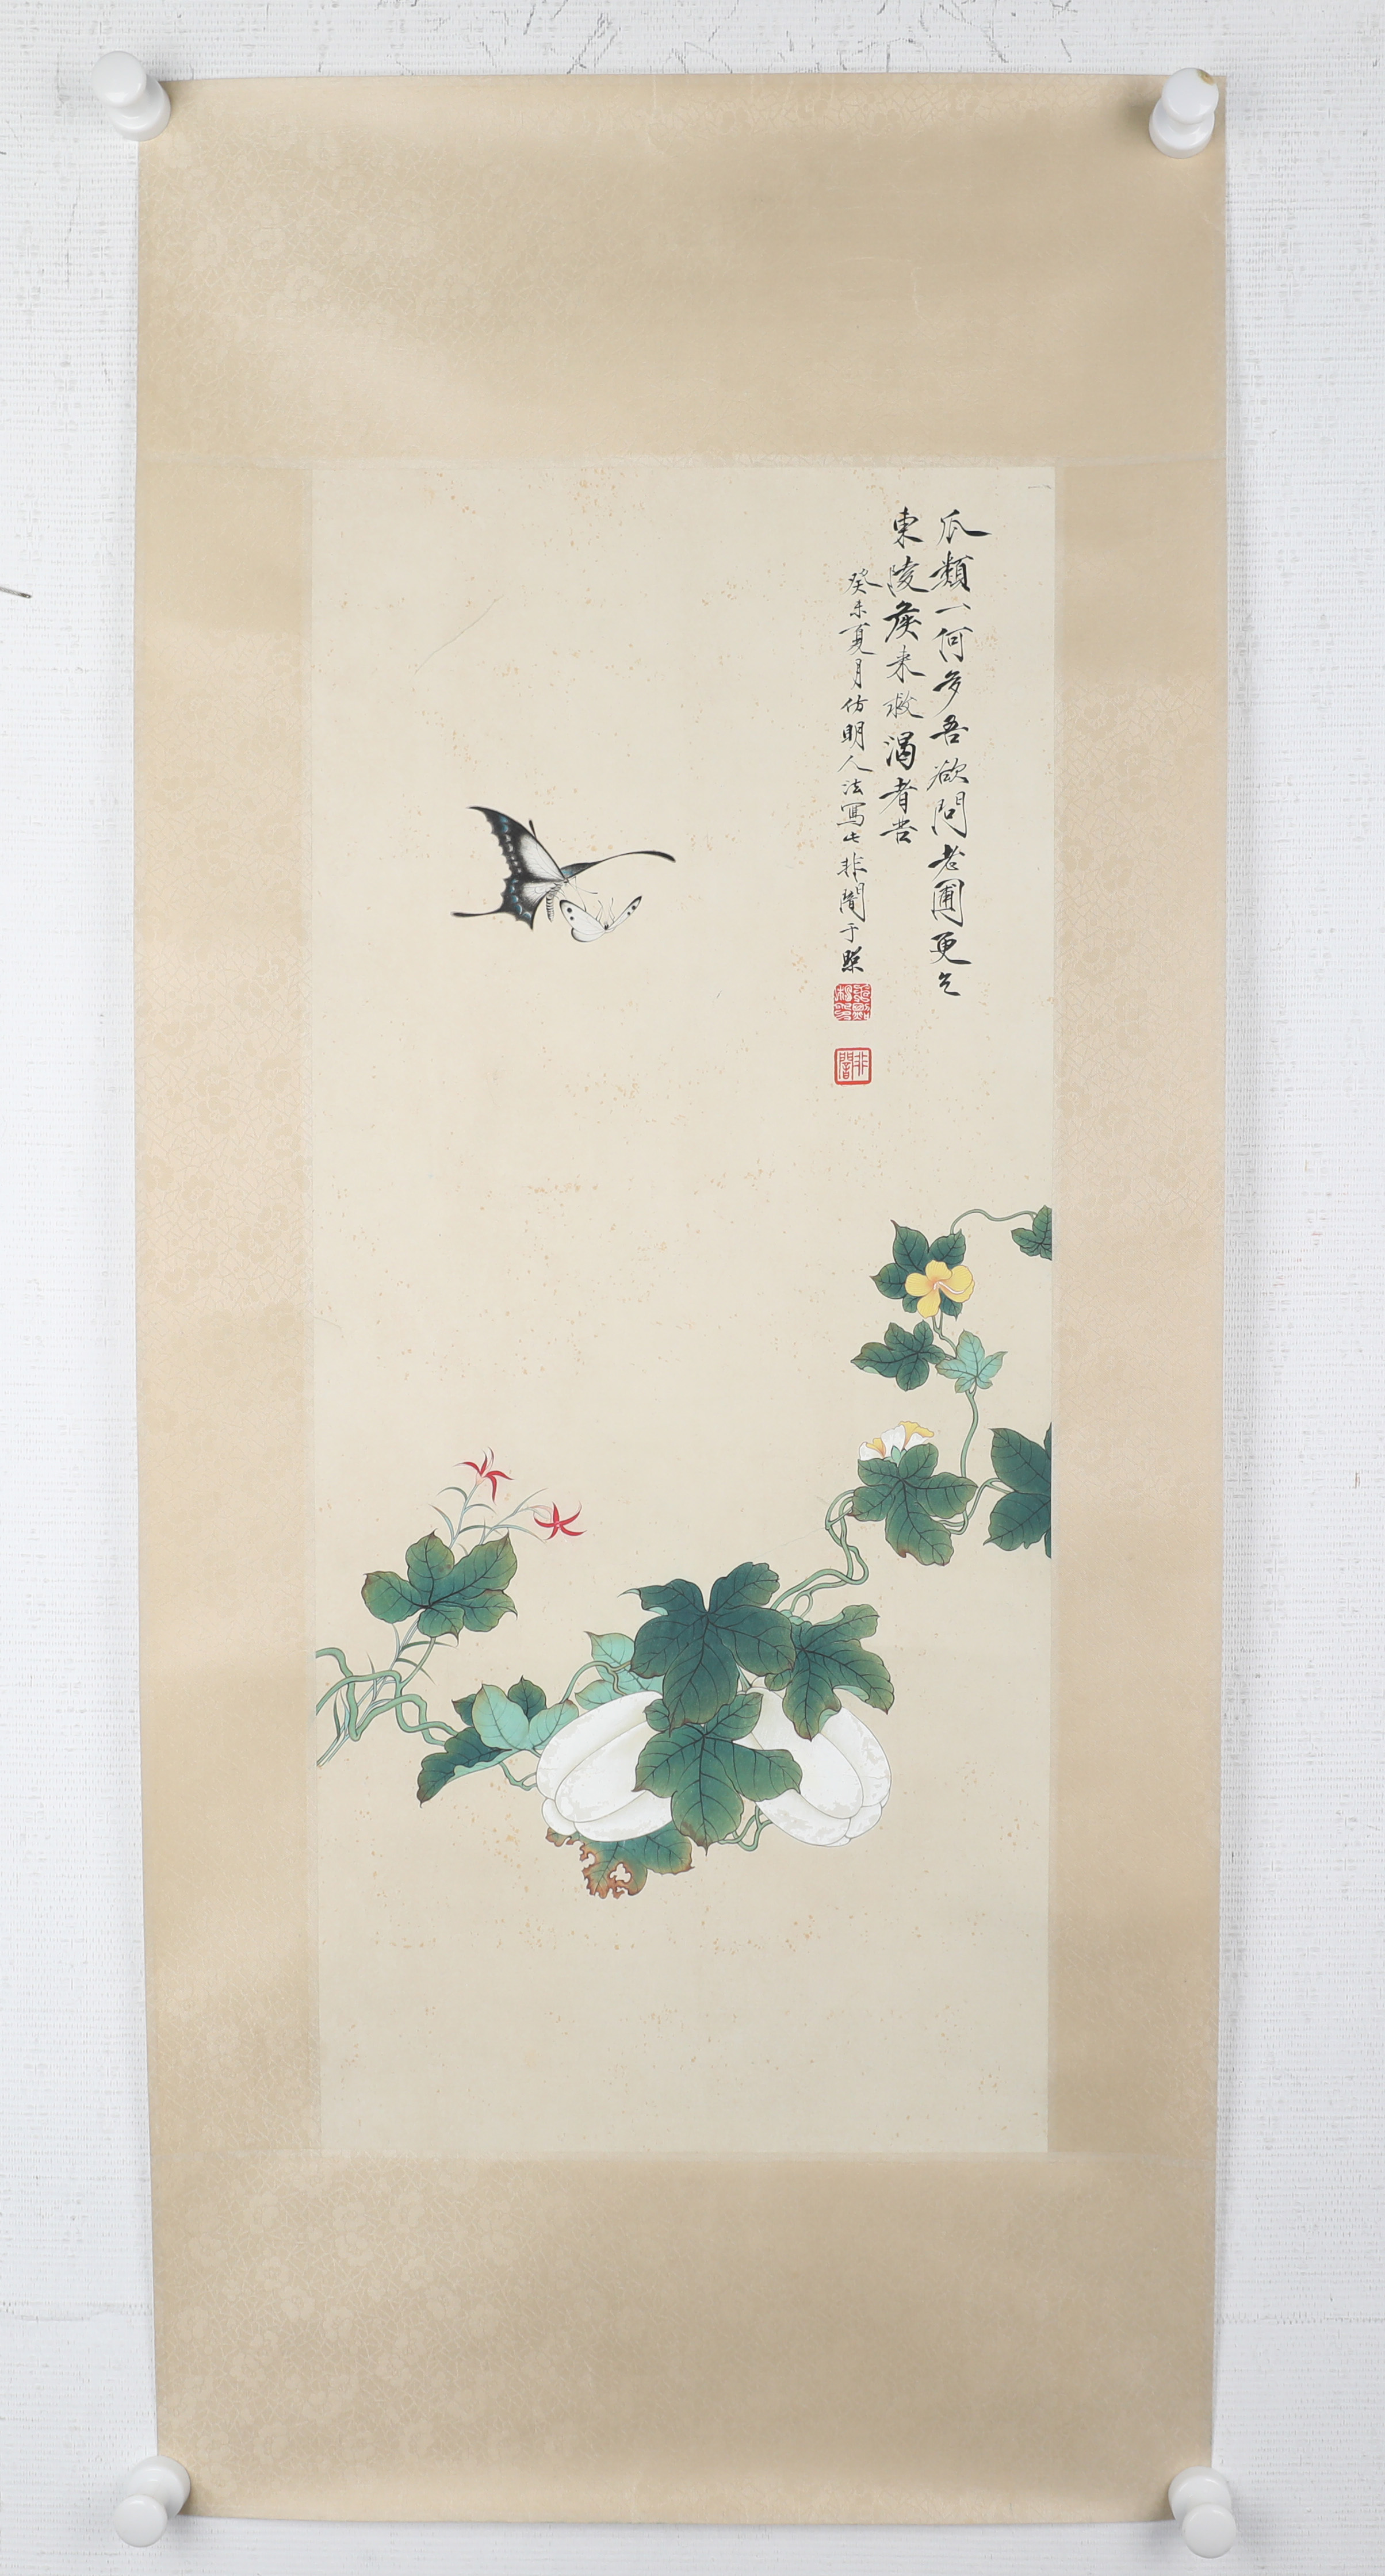 瓜類一何多吾欲問老圃更乞
東陵矦来救渴者苦
癸未夏月仿明人法寫此非闇于照
非闇